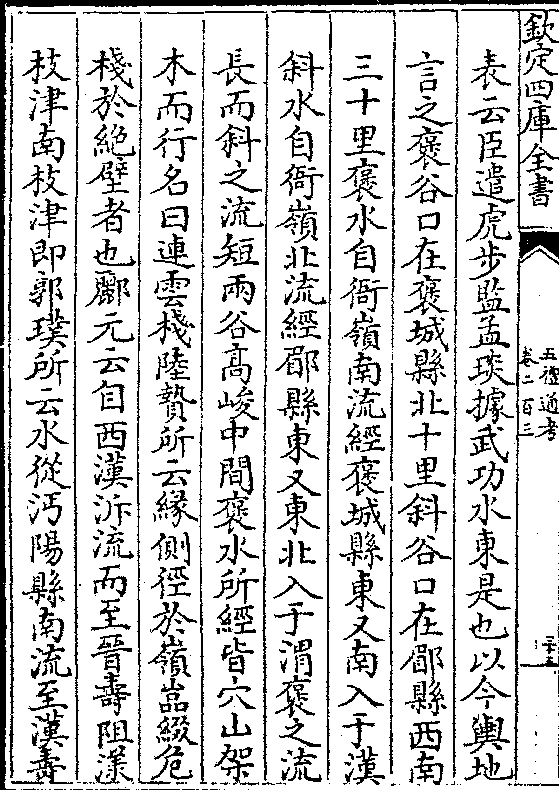 欽定四庫全書
五禮通考
卷二百三
三十五
表云臣遣虎步監孟琰據武功水東是也以今輿地
言之褒谷口在褒城縣北十里斜谷口在郿縣西南
三十里褒水自衙嶺南流經褒城縣東又南入于漢
斜水自衙嶺北流經郿縣東又東北入于渭褒之流
長而斜之流短兩谷髙峻中間褒水所經皆穴山架
木而行名曰連雲棧陸贄所云緣側徑於嶺嵓綴危
棧於絶壁者也酈元云自西漢泝流而至晉壽阻漾
枝津南枝津即郭璞所云水從沔陽縣南流至漢壽